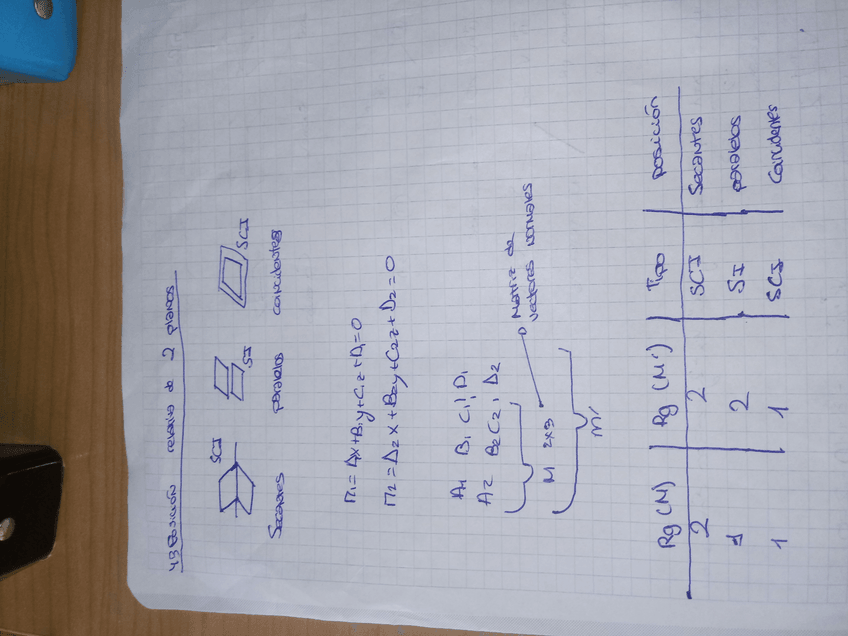 4.3 Posición relativa de 2 planos
SCI SI SCI
Secantes paralelos coincidentes
π₁ = A₁x + B₁y + C₁z + D₁ = 0
π₂ = A₂x + B₂y + C₂z + D₂ = 0
A₁ B₁ C₁ | D₁
A₂ B₂ C₂ | D₂
M 2x3 → Matriz de
vectores normales
M'
Rg (M) | Rg (M') | Tipo | posición
2 | 2 | SCI | Secantes
1 | 2 | SI | paralelos
1 | 1 | SCI | Coincidentes